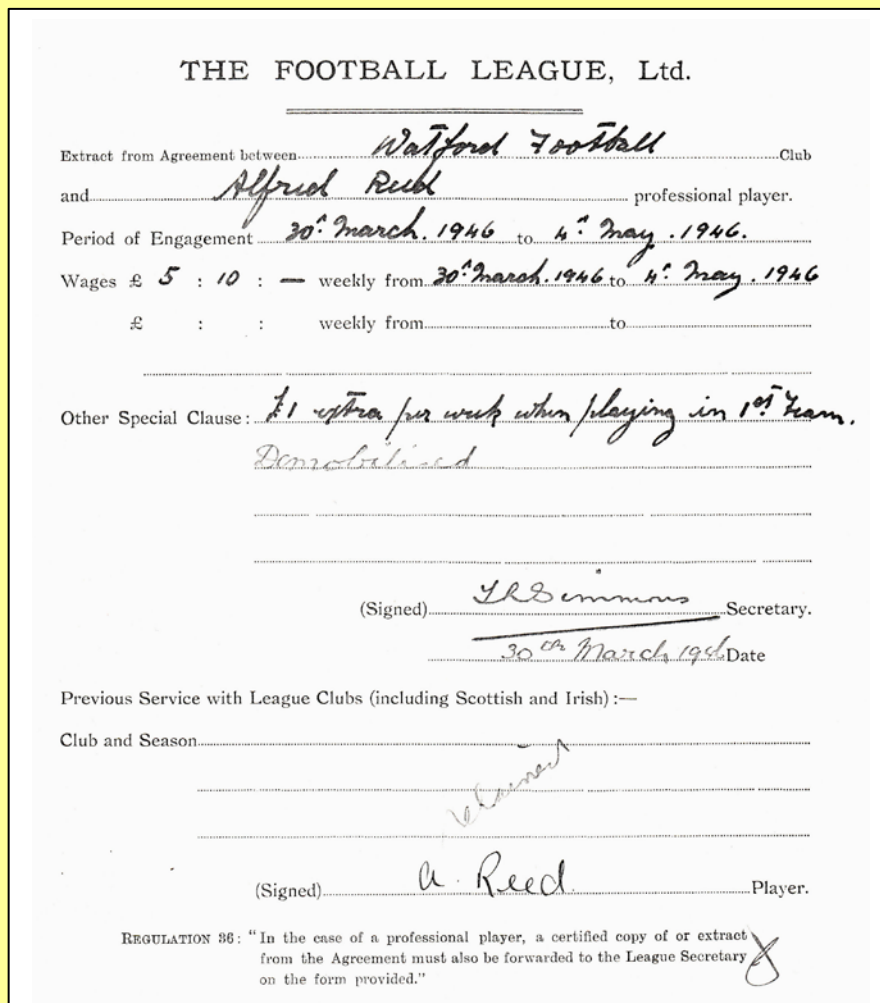 THE FOOTBALL LEAGUE, Ltd.
Extract from Agreement between Watford Football Club
and Alfred Reed professional player.
Period of Engagement 30th March. 1946 to 4th May. 1946.
Wages £ 5 : 10 : — weekly from 30th March. 1946 to 4th May. 1946
£ : : weekly from to
Other Special Clause: £1 extra per week when playing in 1st Team.
Demobilised
(Signed) Simmons Secretary.
30th March 1946 Date
Previous Service with League Clubs (including Scottish and Irish) :—
Club and Season
retained
(Signed) A. Reed. Player.
REGULATION 36: "In the case of a professional player, a certified copy of or extract
from the Agreement must also be forwarded to the League Secretary
on the form provided."